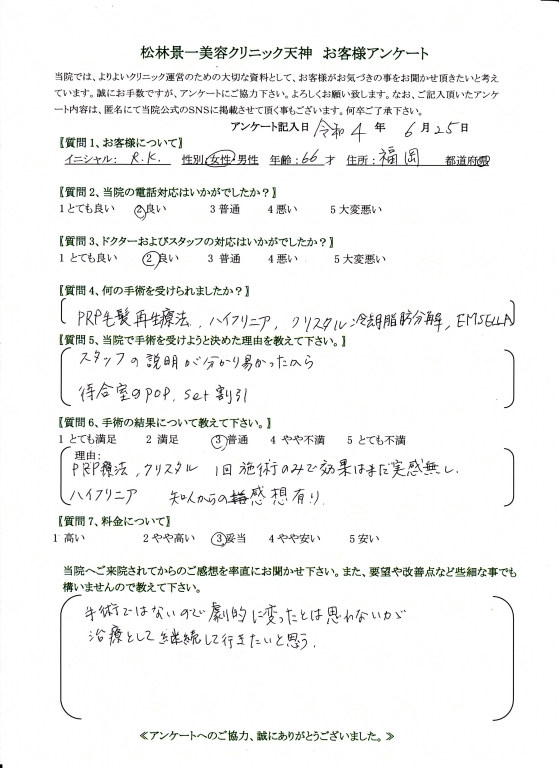 松林景一美容クリニック天神 お客様アンケート
当院では、よりよいクリニック運営のための大切な資料として、お客様がお気づきの事をお聞かせ頂きたいと考え
ています。誠にお手数ですが、アンケートにご協力下さい。よろしくお願い致します。なお、ご記入頂いたアンケ
ート内容は、匿名にて当院公式のSNSに掲載させて頂く事もございます。何卒ご了承下さい。
アンケート記入日 令和 4 年 6 月 25 日
【質問1、お客様について】
イニシャル: R.K. 性別:女性・男性 年齢:66 才 住所: 福岡 都道府県
【質問2、当院の電話対応はいかがでしたか?】
1 とても良い 2 良い 3 普通 4 悪い 5 大変悪い
【質問3、ドクターおよびスタッフの対応はいかがでしたか?】
1 とても良い 2 良い 3 普通 4 悪い 5 大変悪い
【質問4、何の手術を受けられましたか?】
PRP毛髪再生療法, ハイフリニア, クリスタル冷却脂肪分解, EMSELLA
【質問5、当院で手術を受けようと決めた理由を教えて下さい。】
スタッフの説明が分かり易かったから
待合室のPOP, set割引
【質問6、手術の結果について教えて下さい。】
1 とても満足 2 満足 3 普通 4 やや不満 5 とても不満
理由:
PRP療法, クリスタル 1回施術のみで効果はまだ実感無し.
ハイフリニア 知人からの感想有り.
【質問7、料金について】
1 高い 2 やや高い 3 妥当 4 やや安い 5 安い
当院へご来院されてからのご感想を率直にお聞かせ下さい。また、要望や改善点など些細な事でも
構いませんので教えて下さい。
手術ではないので劇的に変ったとは思わないが
治療として継続して行きたいと思う.
≪アンケートへのご協力、誠にありがとうございました。≫